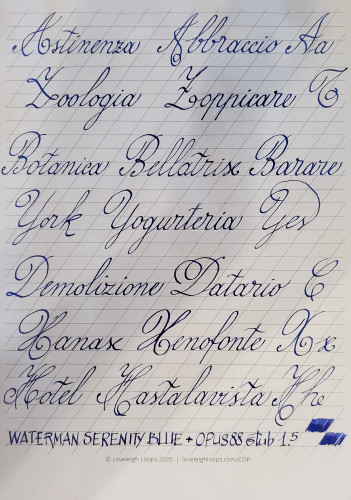 Astinenza Abbraccio Aa
Zoologia Zoppicare
Botanica Bellatrix Barare
York Yogurteria Yes
Demolizione Datario
Xanax Xenofonte Xx
Hotel Hastalavista Hh
WATERMAN SERENITY BLUE + OPUS 88 stub 1.5
© Loveleigh Loops 2020 | loveleighloops.com/COP